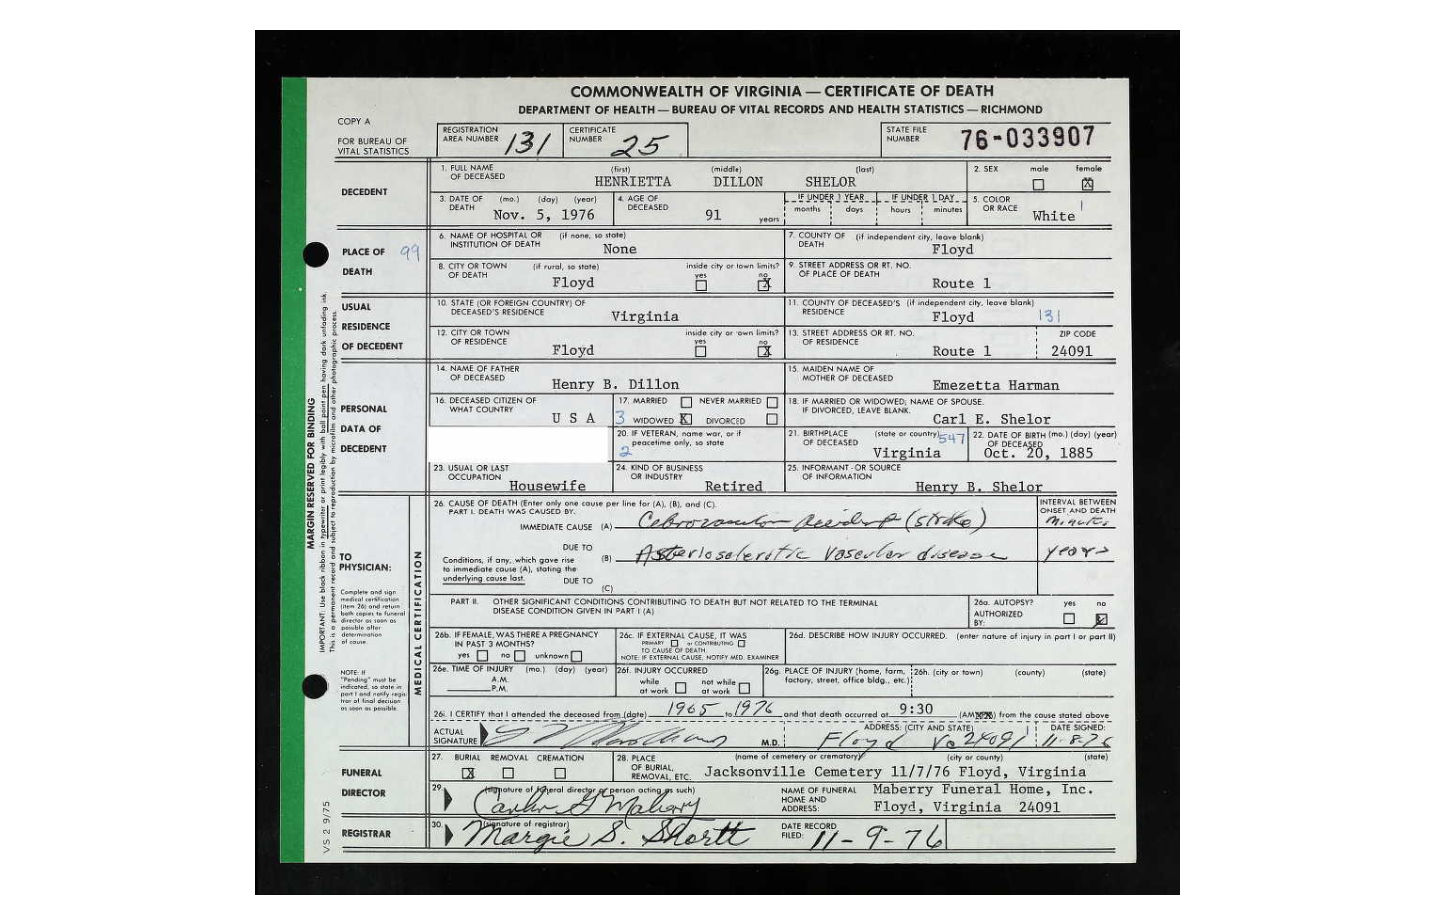 COMMONWEALTH OF VIRGINIA — CERTIFICATE OF DEATH
DEPARTMENT OF HEALTH — BUREAU OF VITAL RECORDS AND HEALTH STATISTICS — RICHMOND
COPY A
FOR BUREAU OF VITAL STATISTICS
REGISTRATION AREA NUMBER 131
CERTIFICATE NUMBER 25
STATE FILE NUMBER 76-033907
DECEDENT
1. FULL NAME OF DECEASED (first) (middle) (last)
HENRIETTA DILLON SHELOR
2. SEX male female X
3. DATE OF DEATH (mo.) (day) (year)
Nov. 5, 1976
4. AGE OF DECEASED 91 years
IF UNDER 1 YEAR months days
IF UNDER 1 DAY hours minutes
5. COLOR OR RACE White
PLACE OF DEATH 99
6. NAME OF HOSPITAL OR INSTITUTION OF DEATH (if none, so state)
None
7. COUNTY OF DEATH (if independent city, leave blank)
Floyd
8. CITY OR TOWN OF DEATH (if rural, so state)
Floyd
inside city or town limits? yes no X
9. STREET ADDRESS OR RT. NO. OF PLACE OF DEATH
Route 1
USUAL RESIDENCE OF DECEDENT
10. STATE (OR FOREIGN COUNTRY) OF DECEASED'S RESIDENCE
Virginia
11. COUNTY OF DECEASED'S RESIDENCE (if independent city, leave blank)
Floyd 131
12. CITY OR TOWN OF RESIDENCE
Floyd
inside city or town limits? yes no X
13. STREET ADDRESS OR RT. NO. OF RESIDENCE
Route 1
ZIP CODE
24091
PERSONAL DATA OF DECEDENT
14. NAME OF FATHER OF DECEASED
Henry B. Dillon
15. MAIDEN NAME OF MOTHER OF DECEASED
Emezetta Harman
16. DECEASED CITIZEN OF WHAT COUNTRY
U S A
17. MARRIED NEVER MARRIED
3 WIDOWED X DIVORCED
18. IF MARRIED OR WIDOWED, NAME OF SPOUSE. IF DIVORCED, LEAVE BLANK.
Carl E. Shelor
20. IF VETERAN, name war, or if peacetime only, so state
2
21. BIRTHPLACE OF DECEASED (state or country) 547
Virginia
22. DATE OF BIRTH (mo.) (day) (year) OF DECEASED
Oct. 20, 1885
23. USUAL OR LAST OCCUPATION
Housewife
24. KIND OF BUSINESS OR INDUSTRY
Retired
25. INFORMANT - OR SOURCE OF INFORMATION
Henry B. Shelor
MARGIN RESERVED FOR BINDING
IMPORTANT: Use black ribbon in typewriter or print legibly with ball point pen having dark unfading ink.
This is a permanent record and subject to reproduction by microfilm and other photographic process.
MEDICAL CERTIFICATION
TO PHYSICIAN:
Complete and sign medical certification (item 26) and return both copies to funeral director as soon as possible after determination of cause.
NOTE: If "Pending" must be indicated, so state in part I and notify registrar of final decision as soon as possible.
26. CAUSE OF DEATH (Enter only one cause per line for (A), (B), and (C).
PART I. DEATH WAS CAUSED BY:
INTERVAL BETWEEN ONSET AND DEATH
IMMEDIATE CAUSE (A) (stroke) minutes
DUE TO
Conditions, if any, which gave rise to immediate cause (A), stating the underlying cause last.
(B) Asteriosclerotic vascular disease years
DUE TO
(C)
PART II. OTHER SIGNIFICANT CONDITIONS CONTRIBUTING TO DEATH BUT NOT RELATED TO THE TERMINAL DISEASE CONDITION GIVEN IN PART I (A)
26a. AUTOPSY? yes no
AUTHORIZED BY:
26b. IF FEMALE, WAS THERE A PREGNANCY IN PAST 3 MONTHS?
yes no unknown
26c. IF EXTERNAL CAUSE, IT WAS
PRIMARY or CONTRIBUTING
TO CAUSE OF DEATH
NOTE: IF EXTERNAL CAUSE, NOTIFY MED. EXAMINER
26d. DESCRIBE HOW INJURY OCCURRED. (enter nature of injury in part I or part II)
26e. TIME OF INJURY (mo.) (day) (year)
A.M.
P.M.
26f. INJURY OCCURRED
while at work not while at work
26g. PLACE OF INJURY (home, farm, factory, street, office bldg., etc.)
26h. (city or town) (county) (state)
26i. I CERTIFY that I attended the deceased from (date) 1965 to 1976 and that death occurred at 9:30 (AM) from the cause stated above
ACTUAL SIGNATURE M.D.
ADDRESS: (CITY AND STATE)
Floyd Va 24091
DATE SIGNED:
11-8-76
FUNERAL DIRECTOR
27. BURIAL REMOVAL CREMATION
X
28. PLACE OF BURIAL, REMOVAL, ETC. (name of cemetery or crematory) (city or county) (state)
Jacksonville Cemetery 11/7/76 Floyd, Virginia
29. (signature of funeral director or person acting as such)
NAME OF FUNERAL HOME AND ADDRESS:
Maberry Funeral Home, Inc.
Floyd, Virginia 24091
REGISTRAR
30. (signature of registrar)
Margie S. Shortt
DATE RECORD FILED: 11-9-76
VS 2 9/75